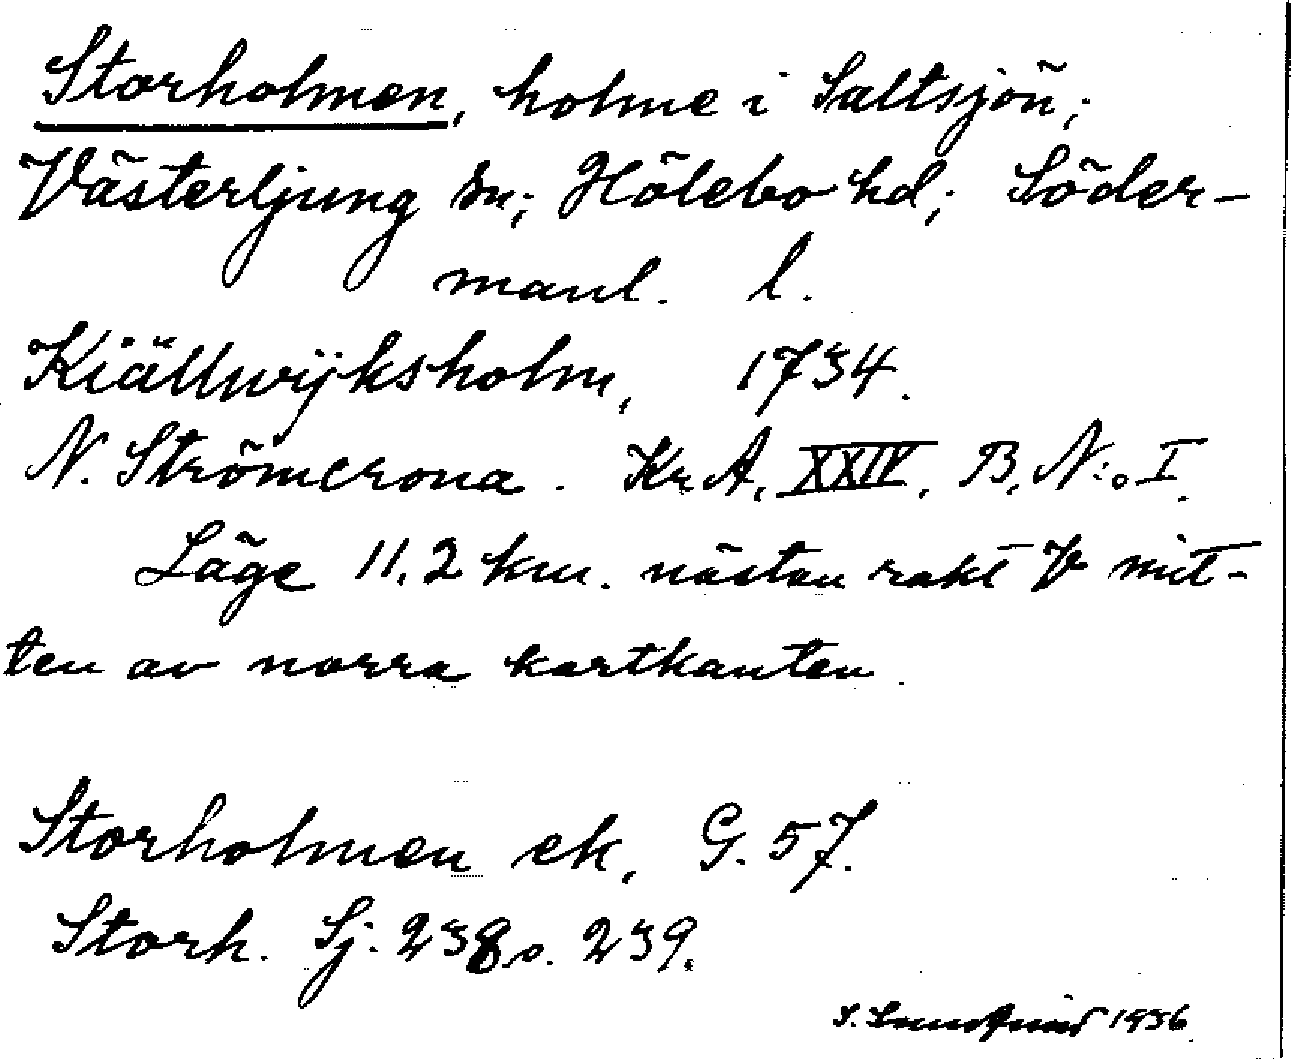 Storholmen, holme i Saltsjön;
Västerljung sn; Hölebo hd; Söder-
manl. l.
Kiällwijksholm, 1734.
N. Strömcrona. Kr. A. XXIV. B. N:o I.
Läge 11,2 km. nästan rakt V mit-
ten av norra kartkanten.
Storholmen ek, G. 57.
Storh. Sj. 238 o. 239.
S. 1936